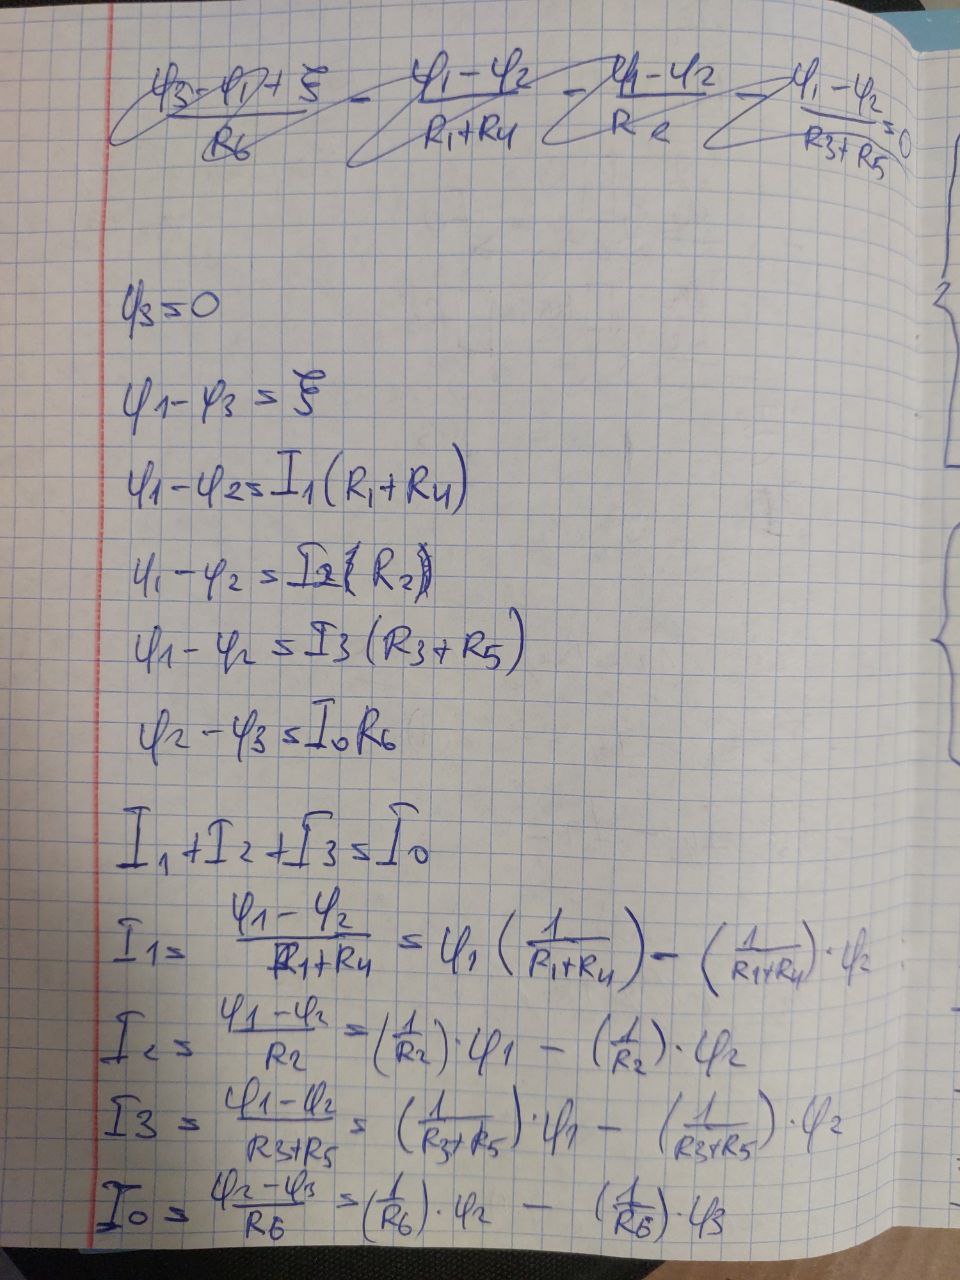 (φ3 - φ1 + ξ)/R6 - (φ1 - φ2)/(R1+R4) - (φ1 - φ2)/R2 - (φ1 - φ2)/(R3+R5) = 0
φ3 = 0
φ1 - φ3 = ξ
φ1 - φ2 = I1 (R1 + R4)
φ1 - φ2 = I2 (R2)
φ1 - φ2 = I3 (R3 + R5)
φ2 - φ3 = I0 R6
I1 + I2 + I3 = I0
I1 = (φ1 - φ2)/(R1+R4) = φ1 (1/(R1+R4)) - (1/(R1+R4)) · φ2
I2 = (φ1 - φ2)/R2 = (1/R2) · φ1 - (1/R2) · φ2
I3 = (φ1 - φ2)/(R3+R5) = (1/(R3+R5)) · φ1 - (1/(R3+R5)) · φ2
I0 = (φ2 - φ3)/R6 = (1/R6) · φ2 - (1/R6) · φ3